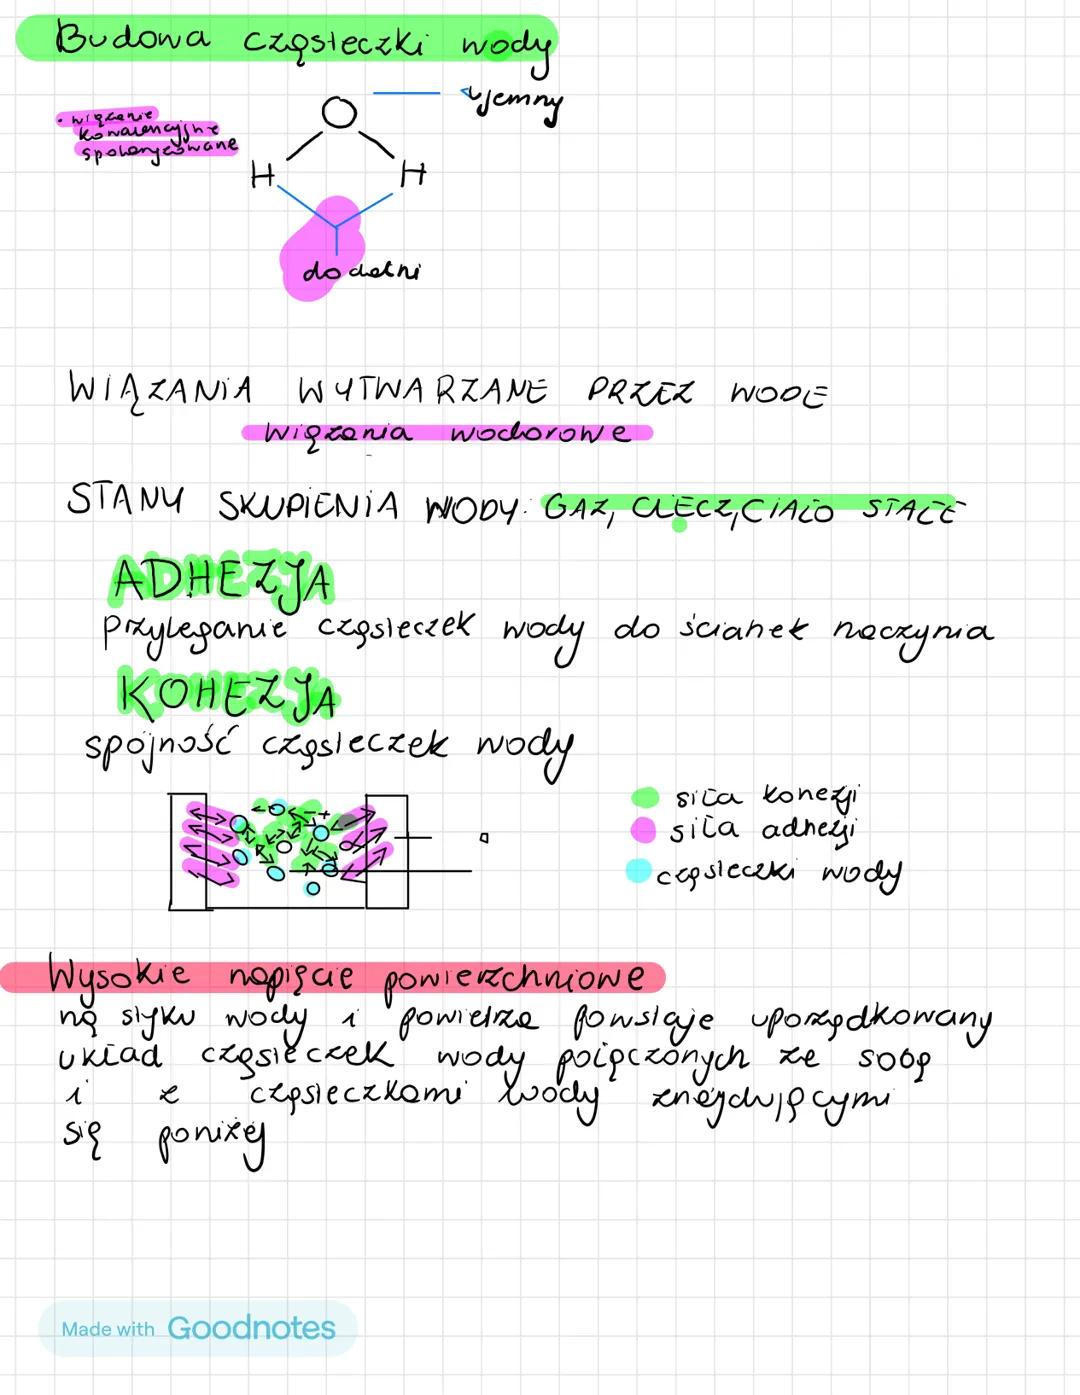 Budowa cząsteczki wody
ujemny
• wiązanie
kowalencyjne
spolaryzowane
O
H H
dodatni
WIĄZANIA WYTWARZANE PRZEZ WODE
wiązania wodorowe
STANY SKUPIENIA WODY: GAZ, CIECZ, CIAŁO STAŁE
ADHEZJA
przyleganie cząsteczek wody do ścianek naczynia
KOHEZJA
spójność cząsteczek wody
siła kohezji
siła adhezji
cząsteczki wody
Wysokie napięcie powierzchniowe
na styku wody i powietrza powstaje uporządkowany
układ cząsteczek wody połączonych ze sobą
i z cząsteczkami wody znajdującymi
się poniżej
Made with Goodnotes